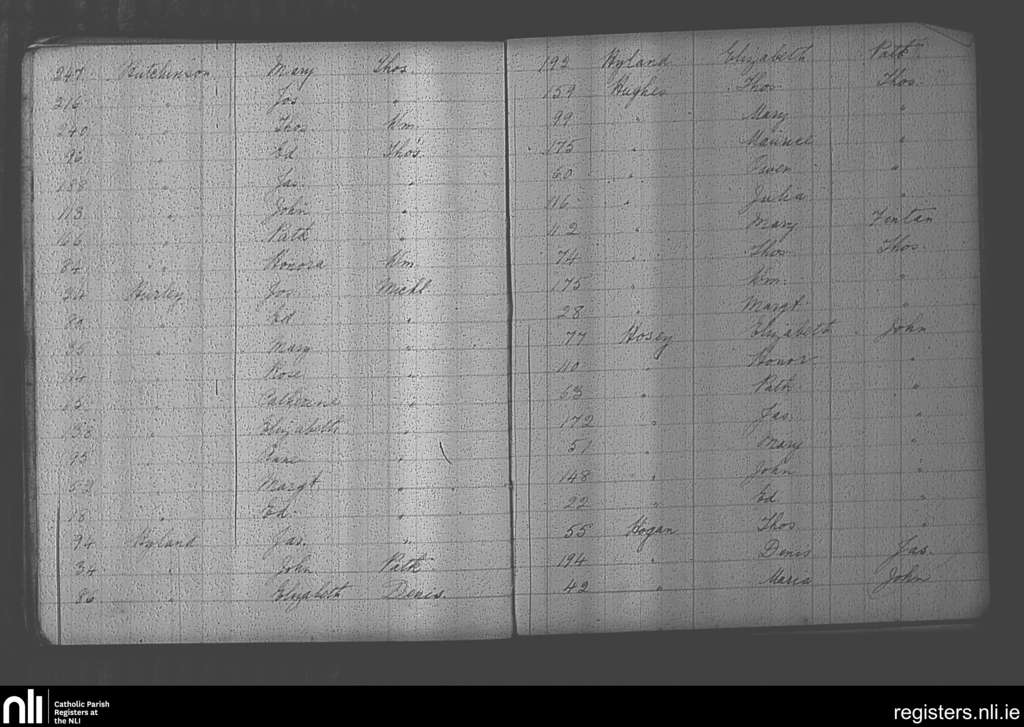 247 Hutchinson Mary Thos.
216 " Jos "
240 " Thos Wm.
96 " Ed Thos.
188 " Jas. "
113 " John "
66 " Patk "
84 " Honora Wm.
Hurley Jos Michl
80 " Ed "
35 " Mary "
" Rose "
15 " Catherine "
138 " Elizabeth "
95 "  "
52 " Margt "
18 " Ed. "
94 Hyland Jas. "
34 " John Patk
86 " Elizabeth Denis
192 Hyland Elizabeth Patk
159 Hughes Thos Thos.
99 " Mary "
175 " Maurice "
60 " Owen "
116 " Julia "
112 " Mary Fintan
74 " Thos Thos.
175 " Wm. "
28 " Margt "
77 Hosey Elizabeth John
110 " Honor "
53 " Patk "
172 " Jas. "
51 " Mary "
148 " John "
22 " Ed "
55 Hogan Thos "
194 " Denis Jas.
42 " Maria John
nli Catholic Parish
Registers at
the NLI
registers.nli.ie